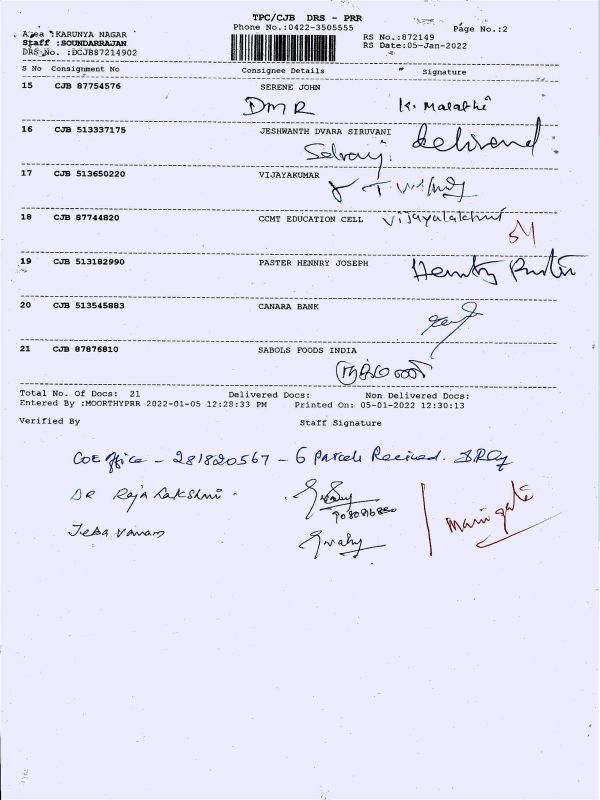 TPC/CJB DRS - PRR
Phone No.:0422-3505555 Page No.:2
Area :KARUNYA NAGAR
Staff :SOUNDARRAJAN
DRS No. :DCJB87214902
RS No.:872149
RS Date:05-Jan-2022
S No Consignment No Consignee Details Signature
15 CJB 87754576 SERENE JOHN
DMR K. Malathi
16 CJB 513337175 JESHWANTH DVARA SIRUVANI
Selvaraj.
17 CJB 513650220 VIJAYAKUMAR
18 CJB 87744820 CCMT EDUCATION CELL Vijayalakshmi
19 CJB 513182990 PASTER HENNRY JOSEPH
20 CJB 513545883 CANARA BANK
21 CJB 87876810 SABOLS FOODS INDIA
Total No. Of Docs: 21 Delivered Docs: Non Delivered Docs:
Entered By :MOORTHYPRR 2022-01-05 12:28:33 PM Printed On: 05-01-2022 12:30:13
Verified By Staff Signature
COE Office - 281820567 - 6 Parcels Received.
DR Raja Lakshmi -
Jeba Vanam